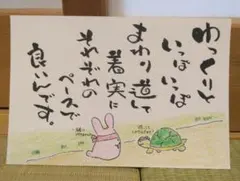 ゆっくりと
いっぽいっぽ
まわり道して
着実に
それぞれの
ペースで
良いんです。